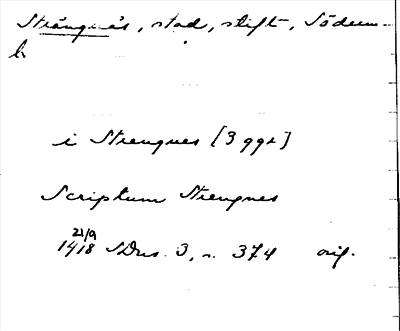 Strängnäs, stad, stift, Söderm-
l.
i Strengnes [3 ggr]
Scriptum Strengnes
21/9
1418 SDns. 3, n. 374 orig.